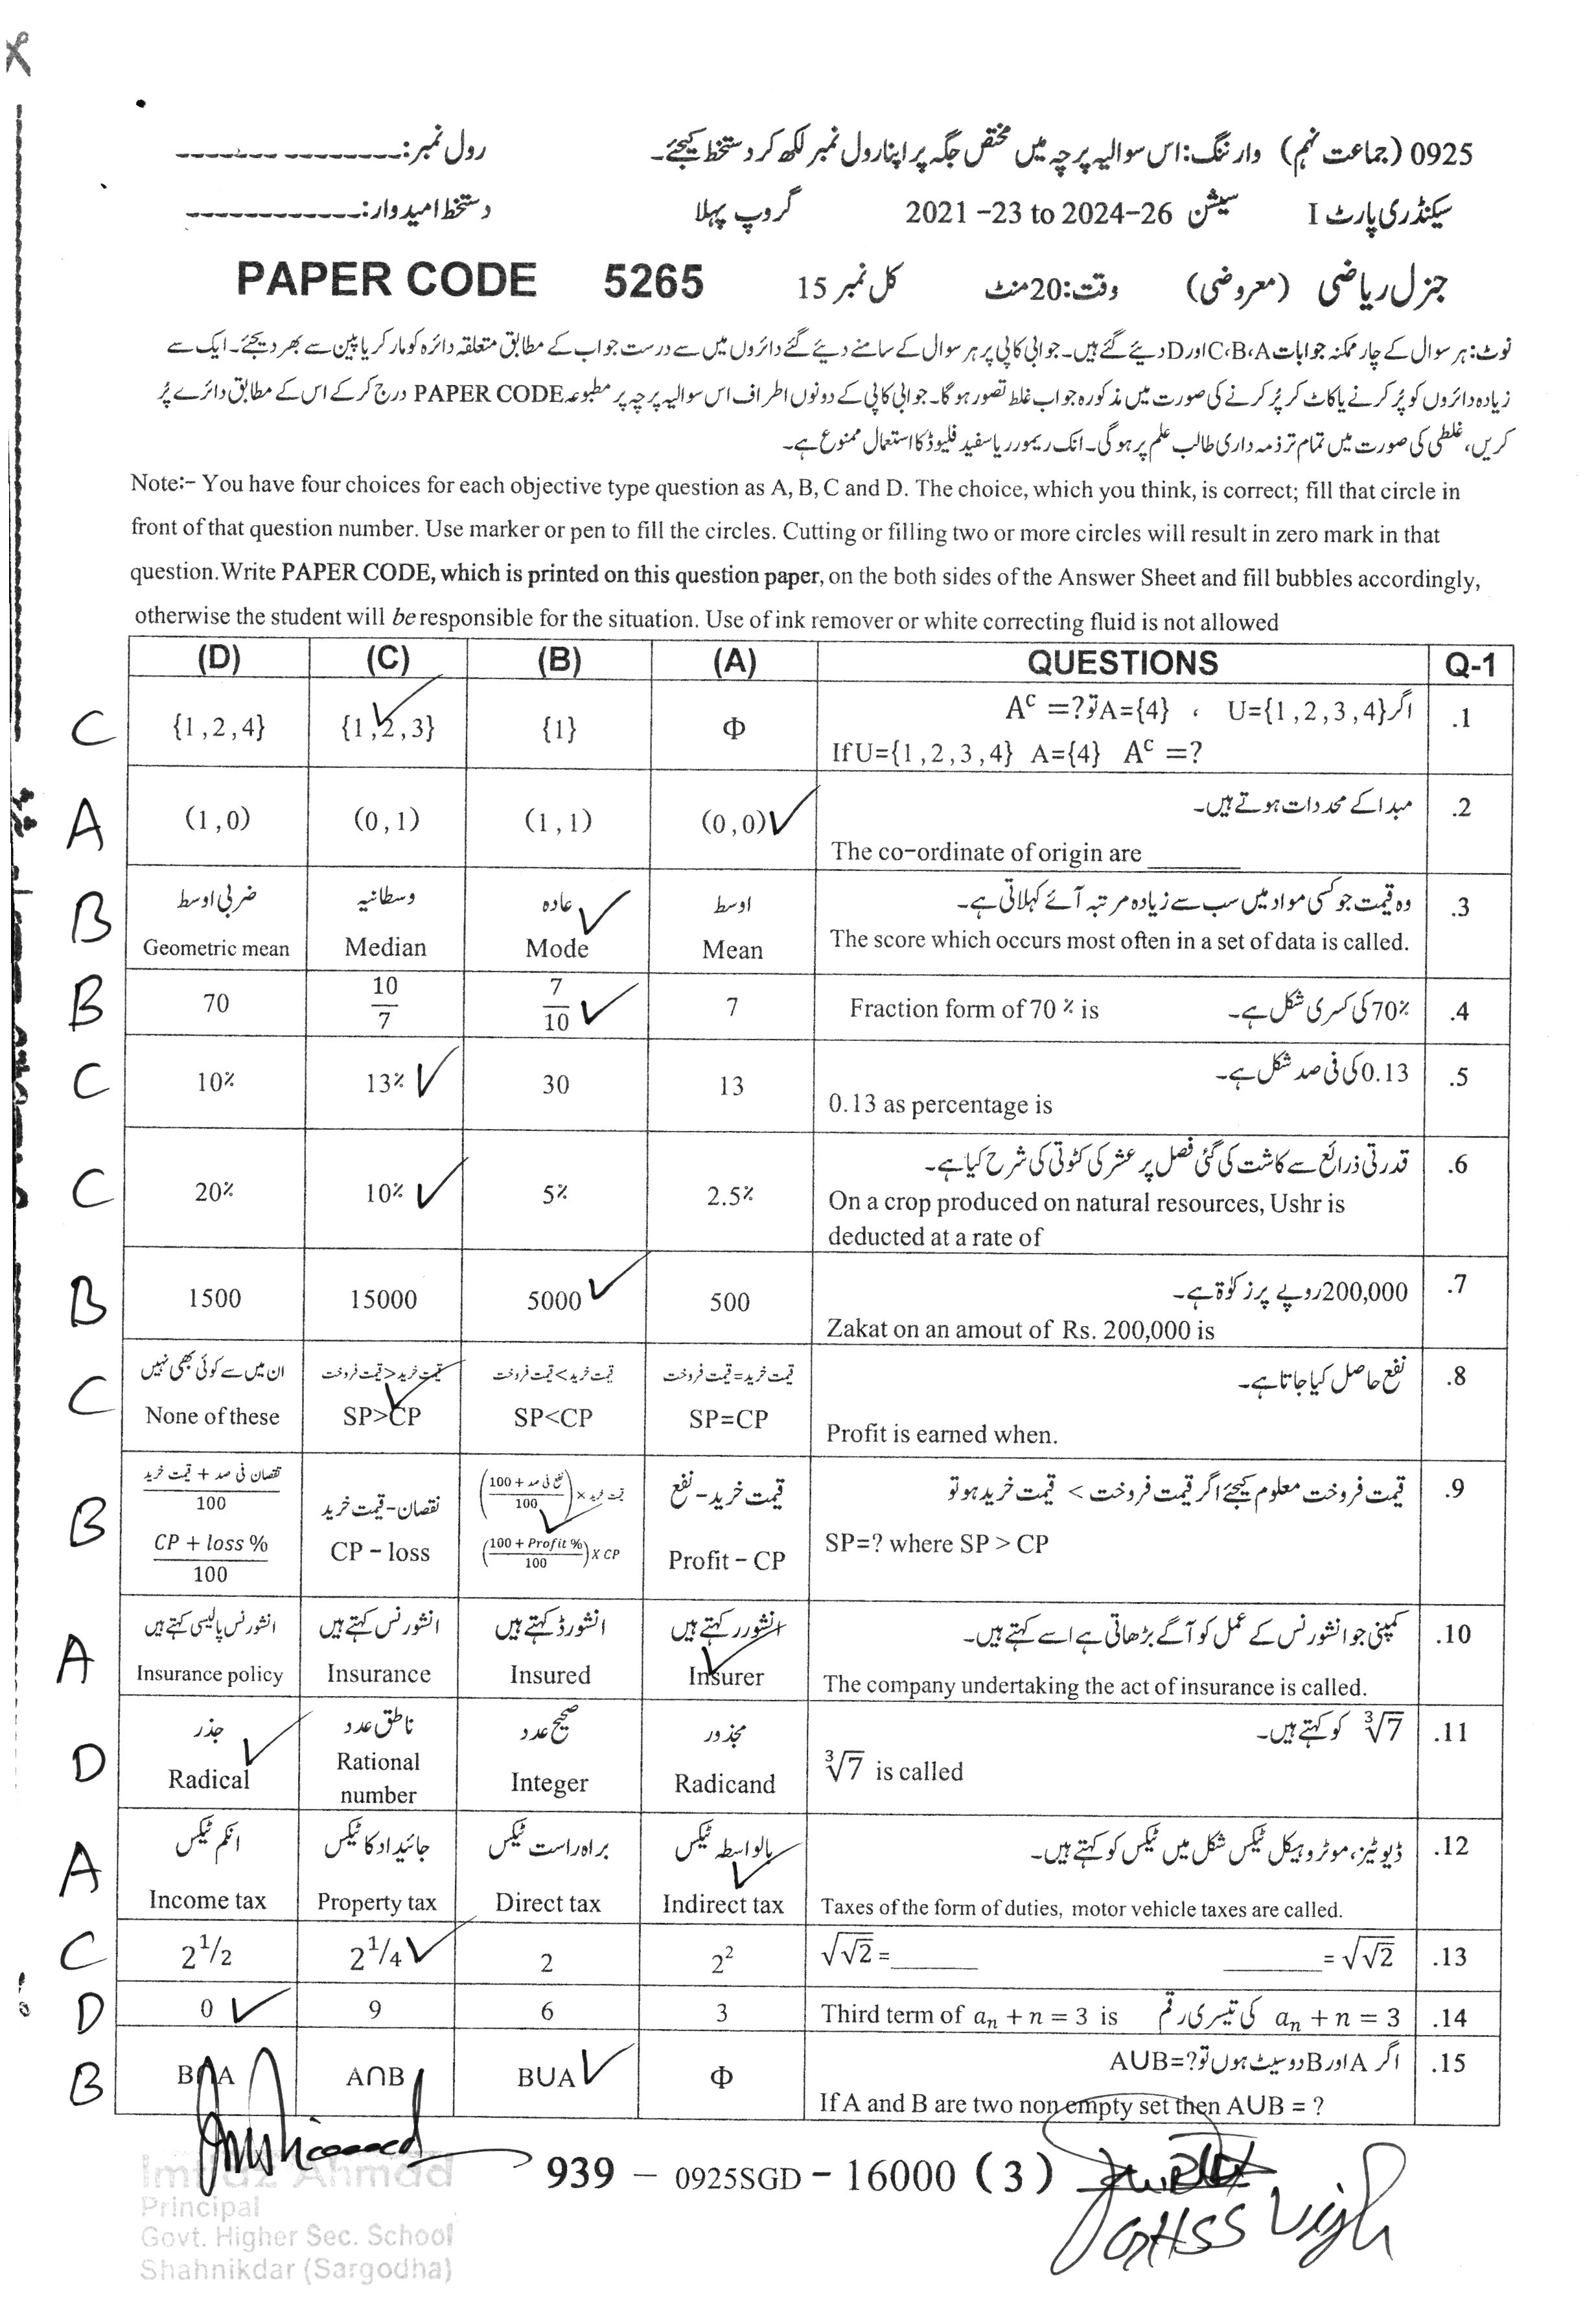 0925 (جماعت نہم) وارننگ: اس سوالیہ پرچہ میں مختص جگہ پر اپنا رول نمبر لکھ کر دستخط کیجئے۔ رول نمبر:
سیکنڈری پارٹ I سیشن 2021-23 to 2024-26 گروپ پہلا دستخط امیدوار:
جنرل ریاضی (معروضی) وقت:20منٹ کل نمبر 15 PAPER CODE 5265
نوٹ: ہر سوال کے چار ممکنہ جوابات A،B،C اور D دیئے گئے ہیں۔ جوابی کاپی پر ہر سوال کے سامنے دیئے گئے دائروں میں سے درست جواب کے مطابق متعلقہ دائرہ کو مارکر یا پین سے بھر دیجئے۔ ایک سے
زیادہ دائروں کو پُر کرنے یا کاٹ کر پُر کرنے کی صورت میں مذکورہ جواب غلط تصور ہو گا۔ جوابی کاپی کے دونوں اطراف اس سوالیہ پرچہ پر مطبوعہ PAPER CODE درج کر کے اس کے مطابق دائرے پُر
کریں، غلطی کی صورت میں تمام تر ذمہ داری طالب علم پر ہو گی۔ انک ریموور یا سفید فلیوڈ کا استعمال ممنوع ہے۔
Note:- You have four choices for each objective type question as A, B, C and D. The choice, which you think, is correct; fill that circle in
front of that question number. Use marker or pen to fill the circles. Cutting or filling two or more circles will result in zero mark in that
question. Write PAPER CODE, which is printed on this question paper, on the both sides of the Answer Sheet and fill bubbles accordingly,
otherwise the student will be responsible for the situation. Use of ink remover or white correcting fluid is not allowed
(D) (C) (B) (A) QUESTIONS Q-1
اگر U={1,2,3,4} ، A={4} تو A^c =?
C {1,2,4} {1,2,3} {1} Φ .1
If U={1,2,3,4} A={4} A^c =?
مبدا کے محددات ہوتے ہیں۔
A (1,0) (0,1) (1,1) (0,0) .2
The co-ordinate of origin are ________
ضربی اوسط وسطانیہ عادہ اوسط وہ قیمت جو کسی مواد میں سب سے زیادہ مرتبہ آئے کہلاتی ہے۔ .3
B Geometric mean Median Mode Mean The score which occurs most often in a set of data is called.
B 70 10/7 7/10 7 Fraction form of 70% is 70% کی کسری شکل ہے۔ .4
0.13 کی فی صد شکل ہے۔
C 10% 13% 30 13 .5
0.13 as percentage is
قدرتی ذرائع سے کاشت کی گئی فصل پر عشر کی کٹوتی کی شرح کیا ہے۔ .6
C 20% 10% 5% 2.5% On a crop produced on natural resources, Ushr is
deducted at a rate of
200,000 روپے پر زکوٰۃ ہے۔ .7
B 1500 15000 5000 500
Zakat on an amout of Rs. 200,000 is
ان میں سے کوئی بھی نہیں قیمت خرید<قیمت فروخت قیمت خرید>قیمت فروخت قیمت خرید=قیمت فروخت نفع حاصل کیا جاتا ہے۔ .8
C None of these SP>CP SP<CP SP=CP
Profit is earned when.
نقصان فی صد + قیمت خرید / 100 نقصان - قیمت خرید (نفع فی صد + 100 / 100) × قیمت خرید قیمت خرید - نفع قیمت فروخت معلوم کیجئے اگر قیمت فروخت > قیمت خرید ہو تو .9
B CP + loss % / 100 CP - loss (100 + Profit % / 100) X CP Profit - CP SP=? where SP > CP
انشورنس پالیسی کہتے ہیں انشورنس کہتے ہیں انشورڈ کہتے ہیں انشورر کہتے ہیں کمپنی جو انشورنس کے عمل کو آگے بڑھاتی ہے اسے کہتے ہیں۔ .10
A Insurance policy Insurance Insured Insurer The company undertaking the act of insurance is called.
جذر ناطق عدد صحیح عدد مجذور ∛7 کو کہتے ہیں۔ .11
D Radical Rational number Integer Radicand ∛7 is called
انکم ٹیکس جائیداد کا ٹیکس براہ راست ٹیکس بالواسطہ ٹیکس ڈیوٹیز، موٹر وہیکل ٹیکس شکل میں ٹیکس کو کہتے ہیں۔ .12
A Income tax Property tax Direct tax Indirect tax Taxes of the form of duties, motor vehicle taxes are called.
C 2^1/2 2^1/4 2 2^2 √√2 =________ ________= √√2 .13
D 0 9 6 3 Third term of aₙ + n = 3 is aₙ + n = 3 کی تیسری رقم .14
اگر A اور B دو سیٹ ہوں تو AUB=? .15
B B∩A A∩B BUA Φ
If A and B are two non empty set then AUB = ?
939 – 0925SGD – 16000 (3)
Imtiaz Ahmad
Principal
Govt. Higher Sec. School
Shahnikdar (Sargodha)
GHSS